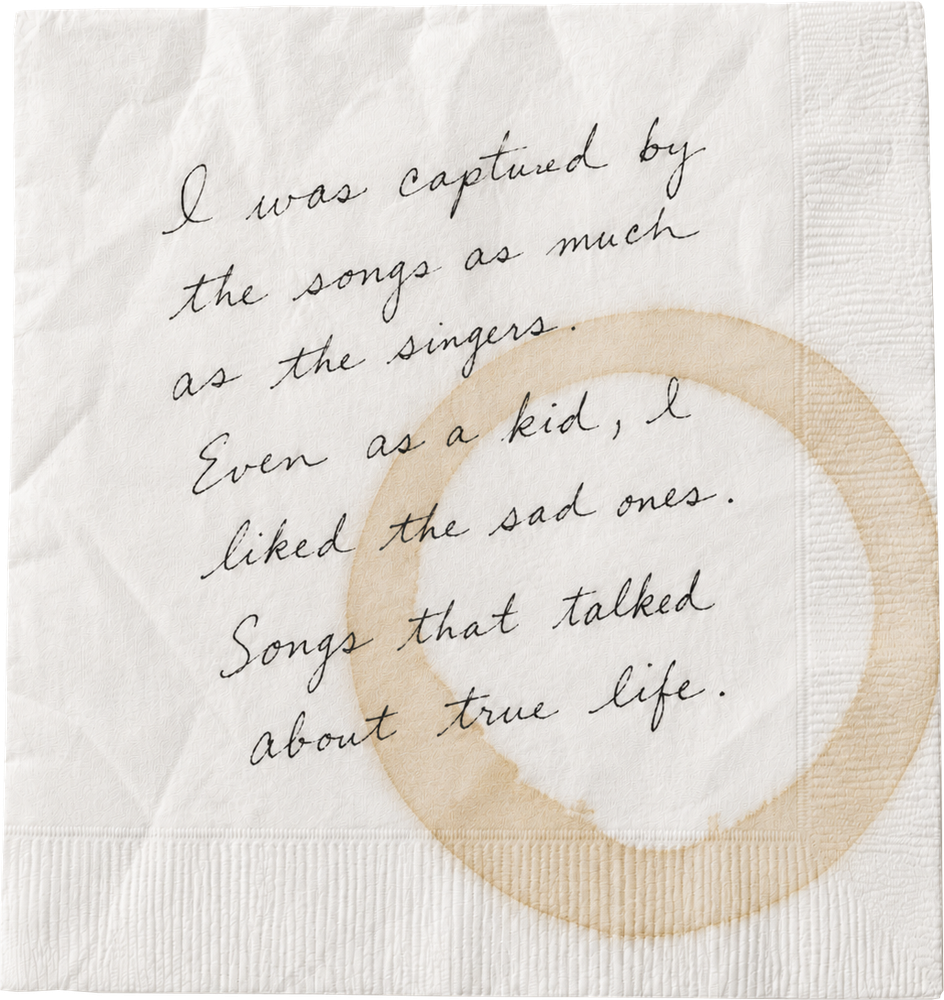 I was captured by
the songs as much
as the singers.
Even as a kid, I
liked the sad ones.
Songs that talked
about true life.